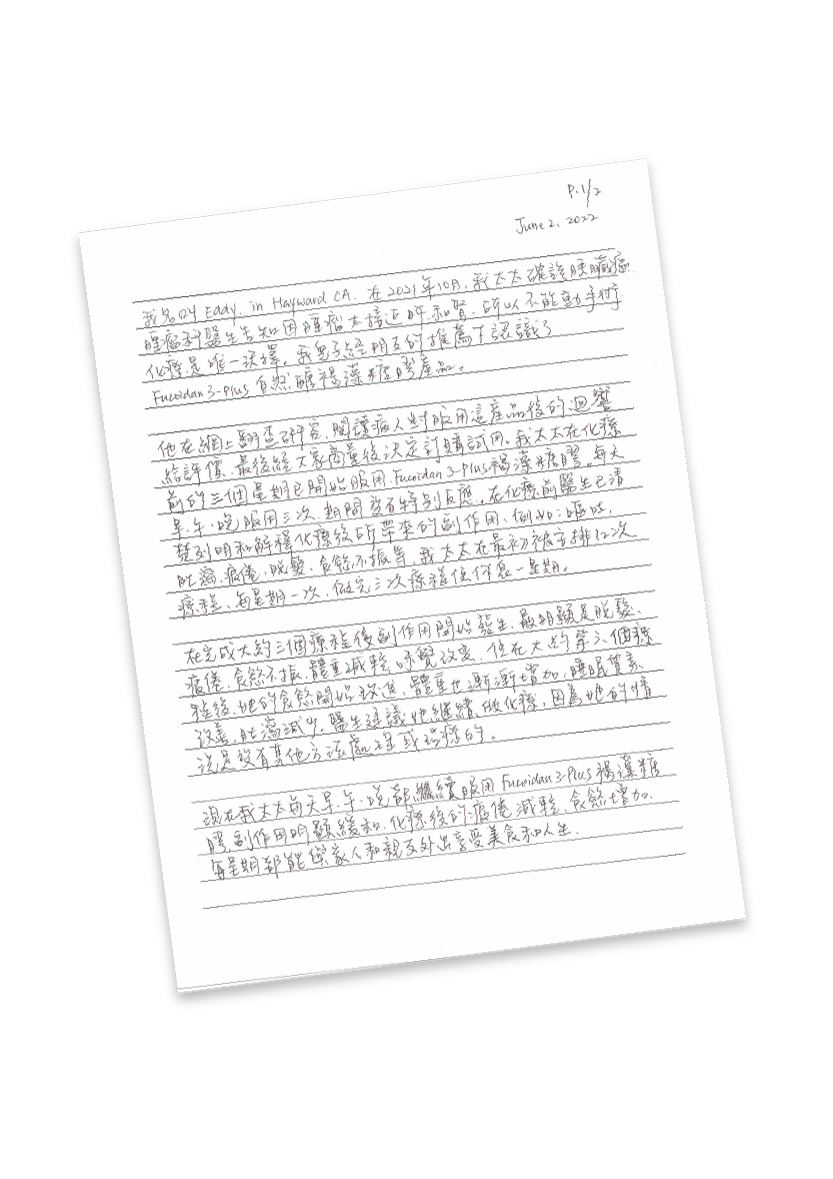 P.1/2
June 2, 2022
我名叫 Eddy, in Hayward CA. 在 2021年10月, 我太太確診胰臟癌.
腫瘤科醫生告知因腫瘤太接近肝和腎, 所以不能動手術
化療是唯一選擇。我兒子經朋友的推薦下認識了
Fucoidan 3-Plus 自然醣褐藻糖膠產品。
他在網上翻查研究, 閱讀病人對服用這產品後的迴響
給評價, 最後經大家商量後決定訂購試用。我太太在化療
前的三個星期已開始服用 Fucoidan 3-Plus 褐藻糖膠。每天
早、午、晚服用三次, 期間沒有特別反應。在化療前醫生已清
楚列明和解釋化療後所帶來的副作用, 例如:嘔吐,
肚瀉, 疲倦, 脫髮, 食慾不振等, 我太太在最初被安排12次
療程, 每星期一次, 做完三次療程後休息一星期。
在完成大約三個療程後副作用開始發生, 最明顯是脫髮、
疲倦, 食慾不振, 體重減輕, 味覺改變, 但在大約第六個療
程後, 她的食慾開始改進, 體重也漸漸增加, 睡眠質素
改善, 肚瀉減少, 醫生建議她繼續做化療, 因為她的情
況是沒有其他方法處理或治療的。
現在我太太每天早、午、晚都繼續服用 Fucoidan 3-Plus 褐藻糖
膠, 副作用明顯緩和, 化療後的疲倦減輕, 食慾增加,
每星期都能與家人和親友外出享受美食和人生.